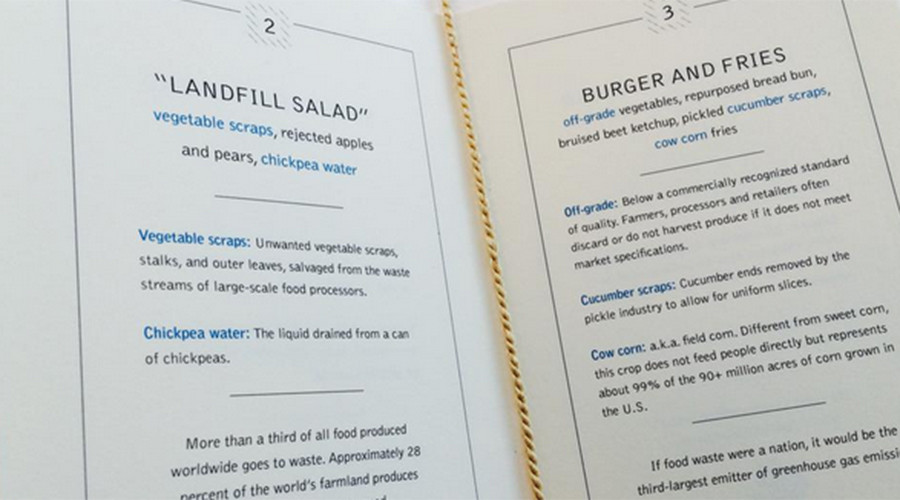 2
"LANDFILL SALAD"
vegetable scraps, rejected apples
and pears, chickpea water
Vegetable scraps: Unwanted vegetable scraps,
stalks, and outer leaves, salvaged from the waste
streams of large-scale food processors.
Chickpea water: The liquid drained from a can
of chickpeas.
More than a third of all food produced
worldwide goes to waste. Approximately 28
percent of the world's farmland produces
3
BURGER AND FRIES
off-grade vegetables, repurposed bread bun,
bruised beet ketchup, pickled cucumber scraps,
cow corn fries
Off-grade: Below a commercially recognized standard
of quality. Farmers, processors and retailers often
discard or do not harvest produce if it does not meet
market specifications.
Cucumber scraps: Cucumber ends removed by the
pickle industry to allow for uniform slices.
Cow corn: a.k.a. field corn. Different from sweet corn,
this crop does not feed people directly but represents
about 99% of the 90+ million acres of corn grown in
the U.S.
If food waste were a nation, it would be the
third-largest emitter of greenhouse gas